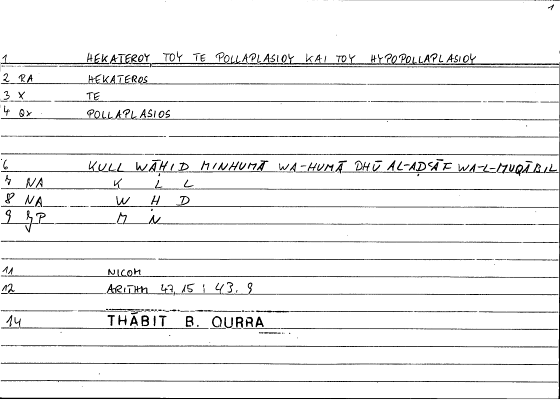 1
1 HEKATEROY TOY TE POLLAPLASIOY KAI TOY HYPOPOLLAPLASIOY
2 RA HEKATEROS
3 X TE
4 QX POLLAPLASIOS
6 KULL WĀḤID MINHUMĀ WA-HUMĀ DHŪ AL-AḌʿĀF WA-L-MUQĀBIL
7 NA K L L
8 NA W Ḥ D
9 M N
11 NICOM
12 ARITHM 43, 15 : 43, 9
14 THĀBIT B. QURRA